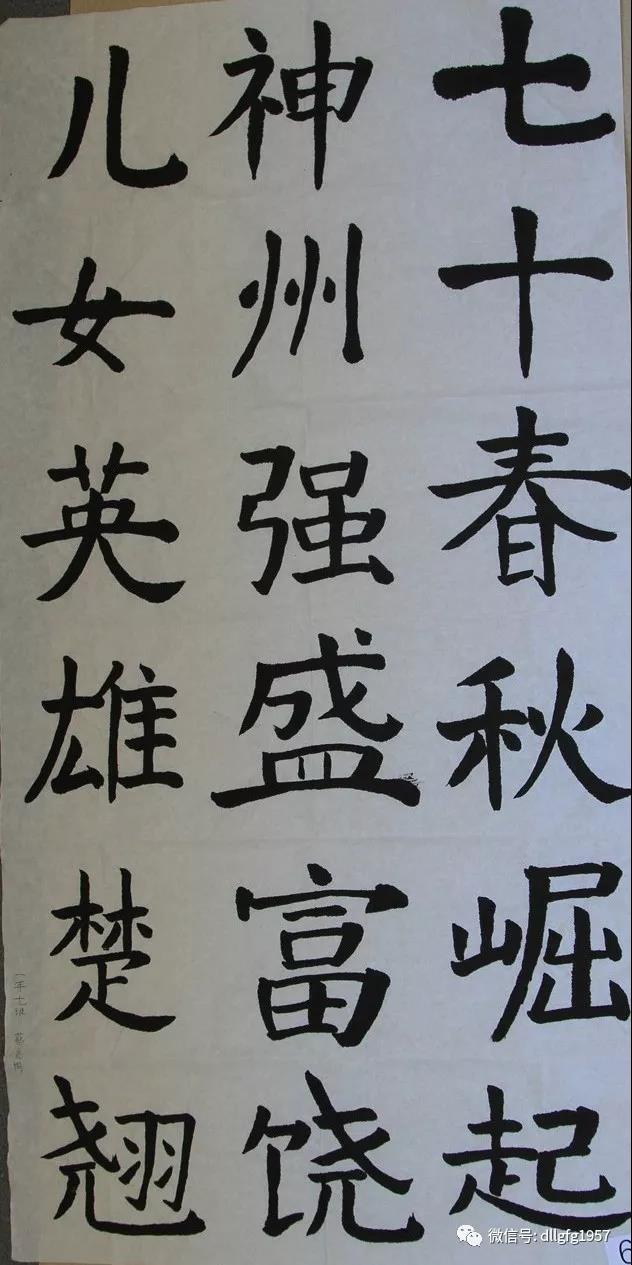 七十春秋崛起
神州强盛富饶
儿女英雄楚翘
一年七班
微信号: dllgfg1957
6